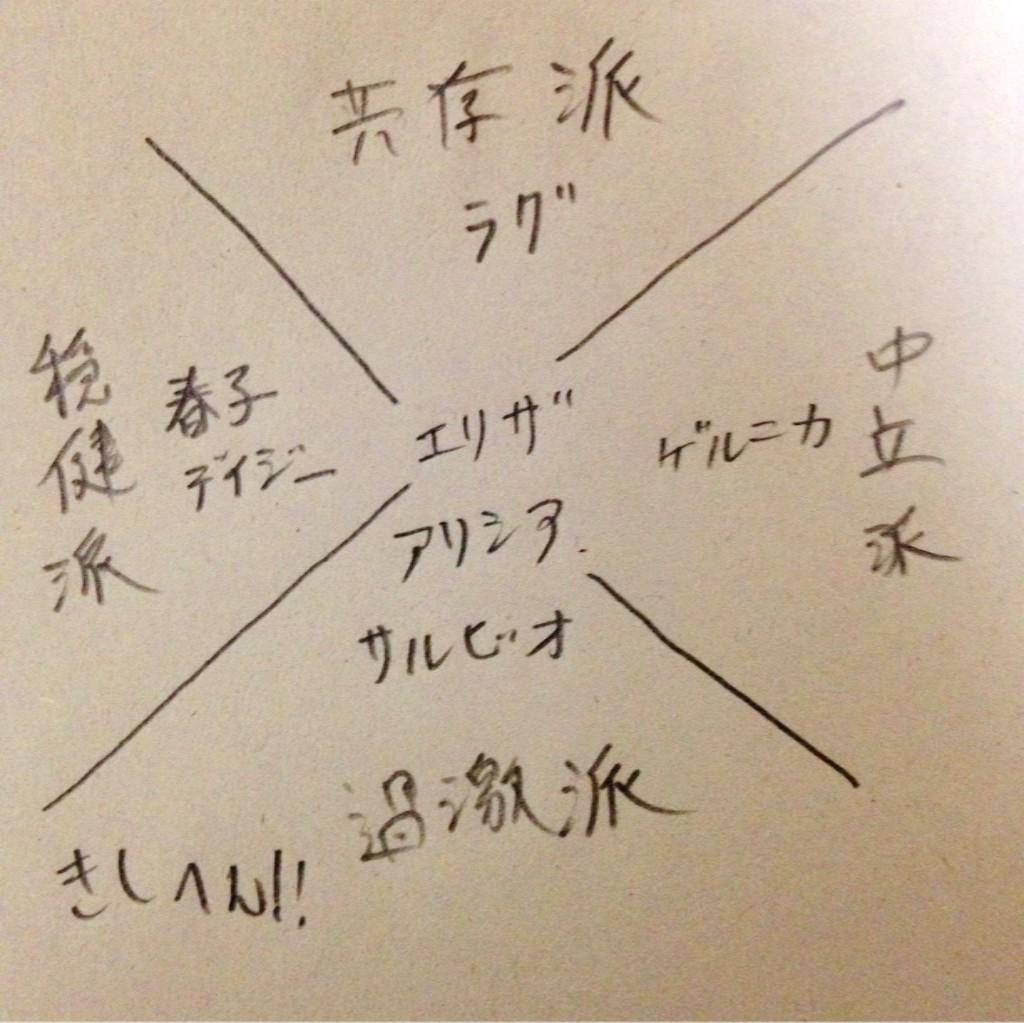 共存派
ラグ
穏健派
春子
デイジー
エリザ
ゲルニカ
中立派
アリシア
サルビオ
過激派
きしへん!!